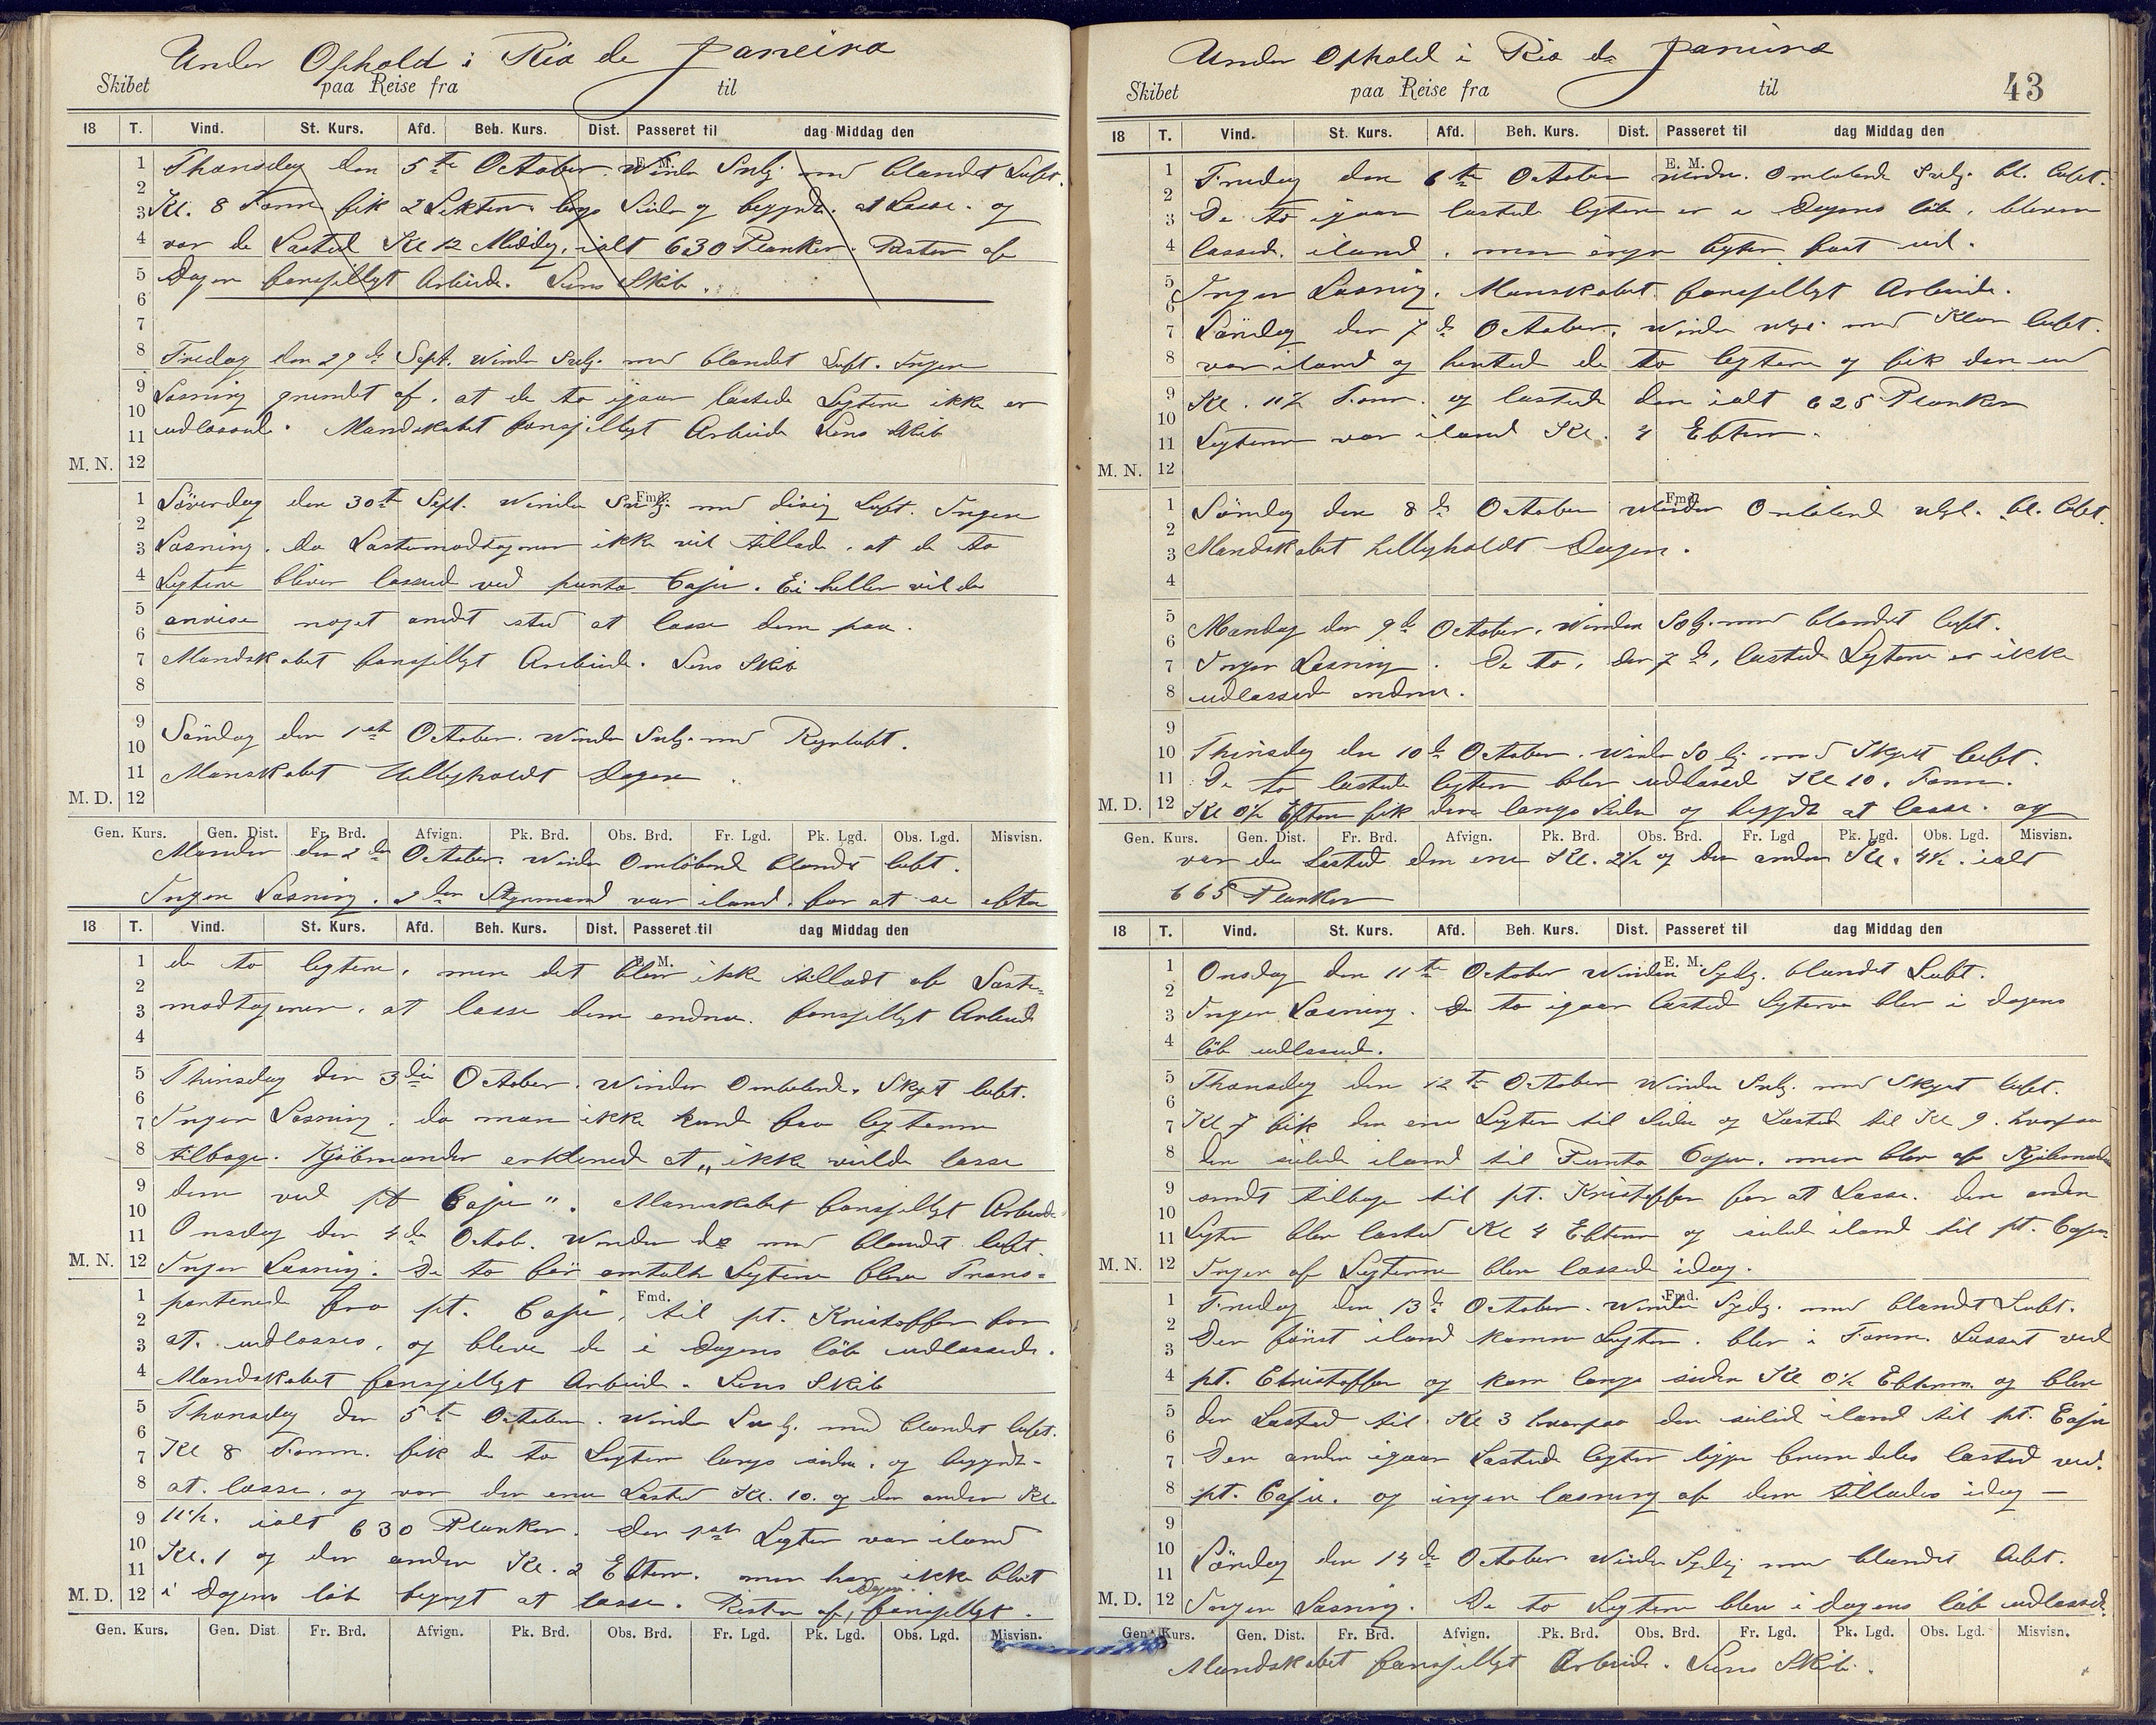 Under Ophold i Rio de Janeiro
Skibet paa Reise fra til
18 T. Vind. St. Kurs. Afd. Beh. Kurs. Dist. Passeret til dag Middag den
E. M.
1 2 3 4 5 6 7 8 9 10 11 12 M. N.
Thorsdag den 5te October. Winden Svlg. med blandet Luft.
Kl. 8 Form fik 2 Lektere langs Siden og begynte at Losse. og
var de Lasted Kl 12 Middag, ialt 630 Planker. Resten af
Dagen forsjelligt Arbeide. Lens Skib.
Fredag den 29de Sept. Winden Svlg. med blandet Luft. Ingen
Losning grundet af, at de to igaar lastede Legtere ikke er
udlossed. Mandskabet forsjelligt Arbeide Lens Skib
Fmd.
1 2 3 4 5 6 7 8 9 10 11 12 M. D.
Löverdag den 30te Sept. Winden Svlg. med disig Luft. Ingen
Losning. da Lastemodtageren ikke vil tillade, at de to
Legtere bliver lossed ved punta Caju. Ei heller vil de
anvise noget andet sted at losse dem paa.
Mandskabet forsjelligt Arebeide. Lens Skib
Söndag den 1ste October. Winden Svlg. med Regnluft.
Manskabet Helligholdt Dagen.
Gen. Kurs. Gen. Dist. Fr. Brd. Afvign. Pk. Brd. Obs. Brd. Fr. Lgd. Pk. Lgd. Obs. Lgd. Misvisn.
Mandag den 2den October. Winden Omlöbend blandt luft.
Ingen Losning. 2den Styrmand var iland. for at se efter
18 T. Vind. St. Kurs. Afd. Beh. Kurs. Dist. Passeret til dag Middag den
E. M.
1 2 3 4 5 6 7 8 9 10 11 12 M. N.
de to legtere, men det blev ikke tilladt af Laste-
modtageren, at losse dem endnu. forsjelligt Arbeid
Thirsdag den 3die October. Winden Omlobend. Skyet luft.
Ingen Losning. da man ikke kunde faa legterne
tilbage. Kjöbmanden erklered at „ikke vilde losse
dem ved pt Caju". Manskabet forsjelligt Arbeide
Onsdag den 4de Octob. Winden do med blandet luft.
Ingen Losning. De to för omtalte Legtere bleve Trans-
Fmd.
1 2 3 4 5 6 7 8 9 10 11 12 M. D.
porterede fra pt. Caju, til pt. Kristoffer for
at. udlosses, og bleve de i Dagens löb udlossede.
Mandskabet forsjelligt Arbeide. Lens Skib
Thorsdag den 5te October. Winden Svlg. med blandet luft.
Kl 8 Form. fik de to Legtere langs siden, og begynte
at. losse, og var den ene Lasted Kl. 10. og den anden Kl.
11½. ialt 630 Planker. Den 1ste Legter var iland
Kl. 1 og den anden Kl. 2 Efterm. men har ikke blit
i Dagens löb begynt at losse. Resten af Dagen forsjelligt.
Gen. Kurs. Gen. Dist Fr. Brd. Afvign. Pk. Brd. Obs. Brd. Fr. Lgd. Pk. Lgd. Obs. Lgd. Misvisn.
Under Ophold i Rio de Janeiro
Skibet paa Reise fra til 43
18 T. Vind. St. Kurs. Afd. Beh. Kurs. Dist. Passeret til dag Middag den
E. M.
1 2 3 4 5 6 7 8 9 10 11 12 M. N.
Fredag den 6te October Winden. Omlobende Svlg. bl. luft.
De to igaar lastede legtere er i Dagens löb, bleven
lossed. iland, men ingen legter faat ud.
Ingen Losning. Manskabet forsjelligt Arbeide.
Löndag den 7de October. Winden med Klar luft.
var iland og hented de to legtere og fik den ene
Kl. 11½ Form. og lastede den ialt 625 Planker
Legteren var iland Kl. 4 Efterm.
Fmd.
1 2 3 4 5 6 7 8 9 10 11 12 M. D.
Söndag den 8de October Winden Omlobend bl. luft.
Mandskabet helligholdt Dagen.
Mandag den 9de October. Winden SOlg. med blandet luft.
Ingen Losning. De to, den 7de, lasted Legtere er ikke
udlossed endnu.
Thirsdag den 10de October. Winden SOlg. med Skyet luft.
De to lastede legtere blev udlossed Kl 10. Form.
Kl 0½ Efterm fik dem langs Siden og begyndte at losse. og
Gen. Kurs. Gen. Dist. Fr. Brd. Afvign. Pk. Brd. Obs. Brd. Fr. Lgd Pk. Lgd. Obs. Lgd. Misvisn.
var de Lasted den ene Kl. 2½ og den anden Kl. 4½. ialt
665 Planker
18 T. Vind. St. Kurs. Afd. Beh. Kurs. Dist. Passeret til dag Middag den
E. M.
1 2 3 4 5 6 7 8 9 10 11 12 M. N.
Onsdag den 11te October Winden Sydlg. blandet Luft.
Ingen Losning. De to igaar lasted Legterne blev i dagens
löb udlossed.
Thorsdag den 12te October Winden Svlg. med Skyet luft.
Kl 7 fik den ene Legter til Siden og Lasted til Kl 9. hvorpaa
den seilede iland til Punta Caju. men blev af Kjöbmanden
sendt tilbage til pt. Kristoffer for at Losse. den anden
Legter blev lasted Kl 4 Efterm og seilede iland til pt. Caju.
Ingen af Legterne blev lossed idag.
Fmd.
1 2 3 4 5 6 7 8 9 10 11 12 M. D.
Fredag den 13de October. Winden Sydlg. med blandet Luft.
Den först iland komne Legter. blev i Form. Losset ved
pt. Christoffer og kom langs siden Kl 0½ Efterm. og blev
den Lasted til Kl 3 hvorpaa den seilede iland til pt. Caju
Den anden igaar Lastede legter ligger fremdeles lasted ved
pt. Caju. og ingen losning af dem tillades idag —
Löndag den 14de October Winden Sydlg med blandet luft.
Ingen Losning. De to Legtere blev i dagens löb udlossed.
Gen. Kurs. Gen. Dist. Fr. Brd. Afvign. Pk. Brd. Obs. Brd. Fr. Lgd. Pk. Lgd. Obs. Lgd. Misvisn.
Mandskabet forsjelligt Arbeide. Lens Skib.